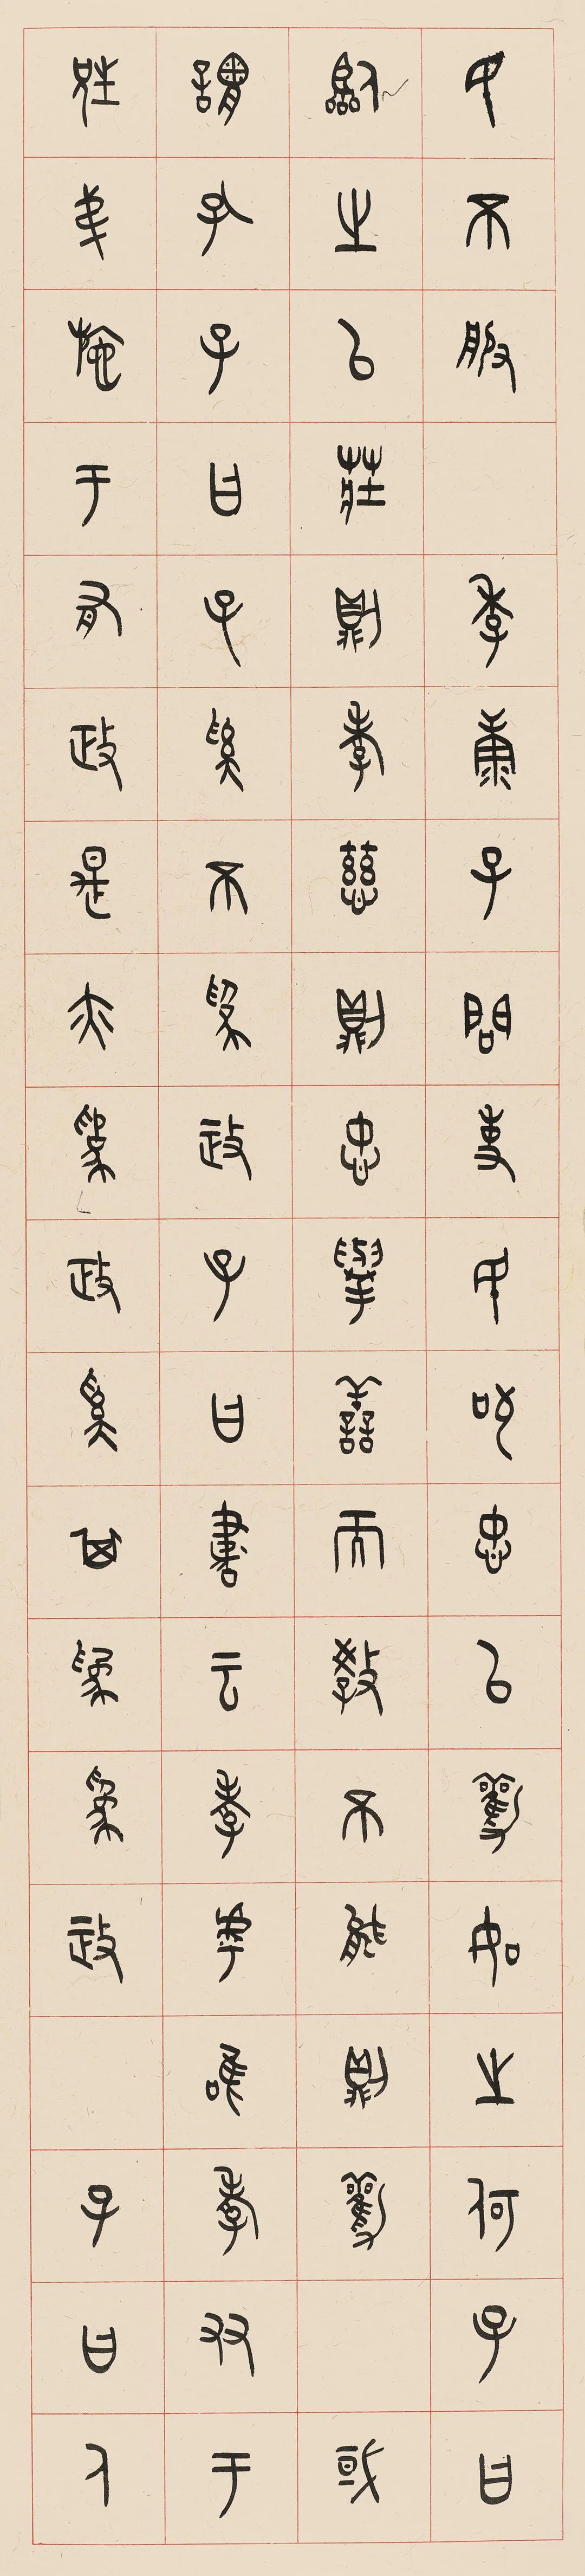 民不服 季康子問使民敬忠以勸如之何子曰
臨之以莊則孝慈則忠舉善而教不能則勸 或
謂孔子曰子奚不為政子曰書云孝乎惟孝友于
兄弟施于有政是亦為政奚其為為政 子曰人